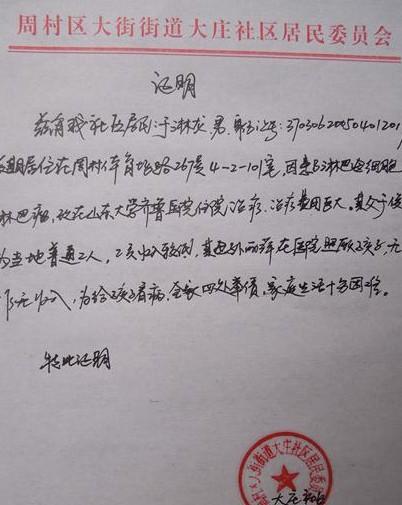 周村区大街街道大庄社区居民委员会
证明
兹有我社区居民于淋龙 男,身份证号:37030620050401201
长期居住在周村体育场路267号4-2-101室,因患B淋巴母细胞
淋巴瘤,现在山东大学齐鲁医院住院治疗,治疗费用巨大。其父于俊
为当地普通工人,工资收入较低,其母孙丽萍在医院照顾孩子,无
任何收入,为给孩子看病,全家四处举债,家庭生活十分困难。
特此证明
大街街道大庄社区居民委员
大庄